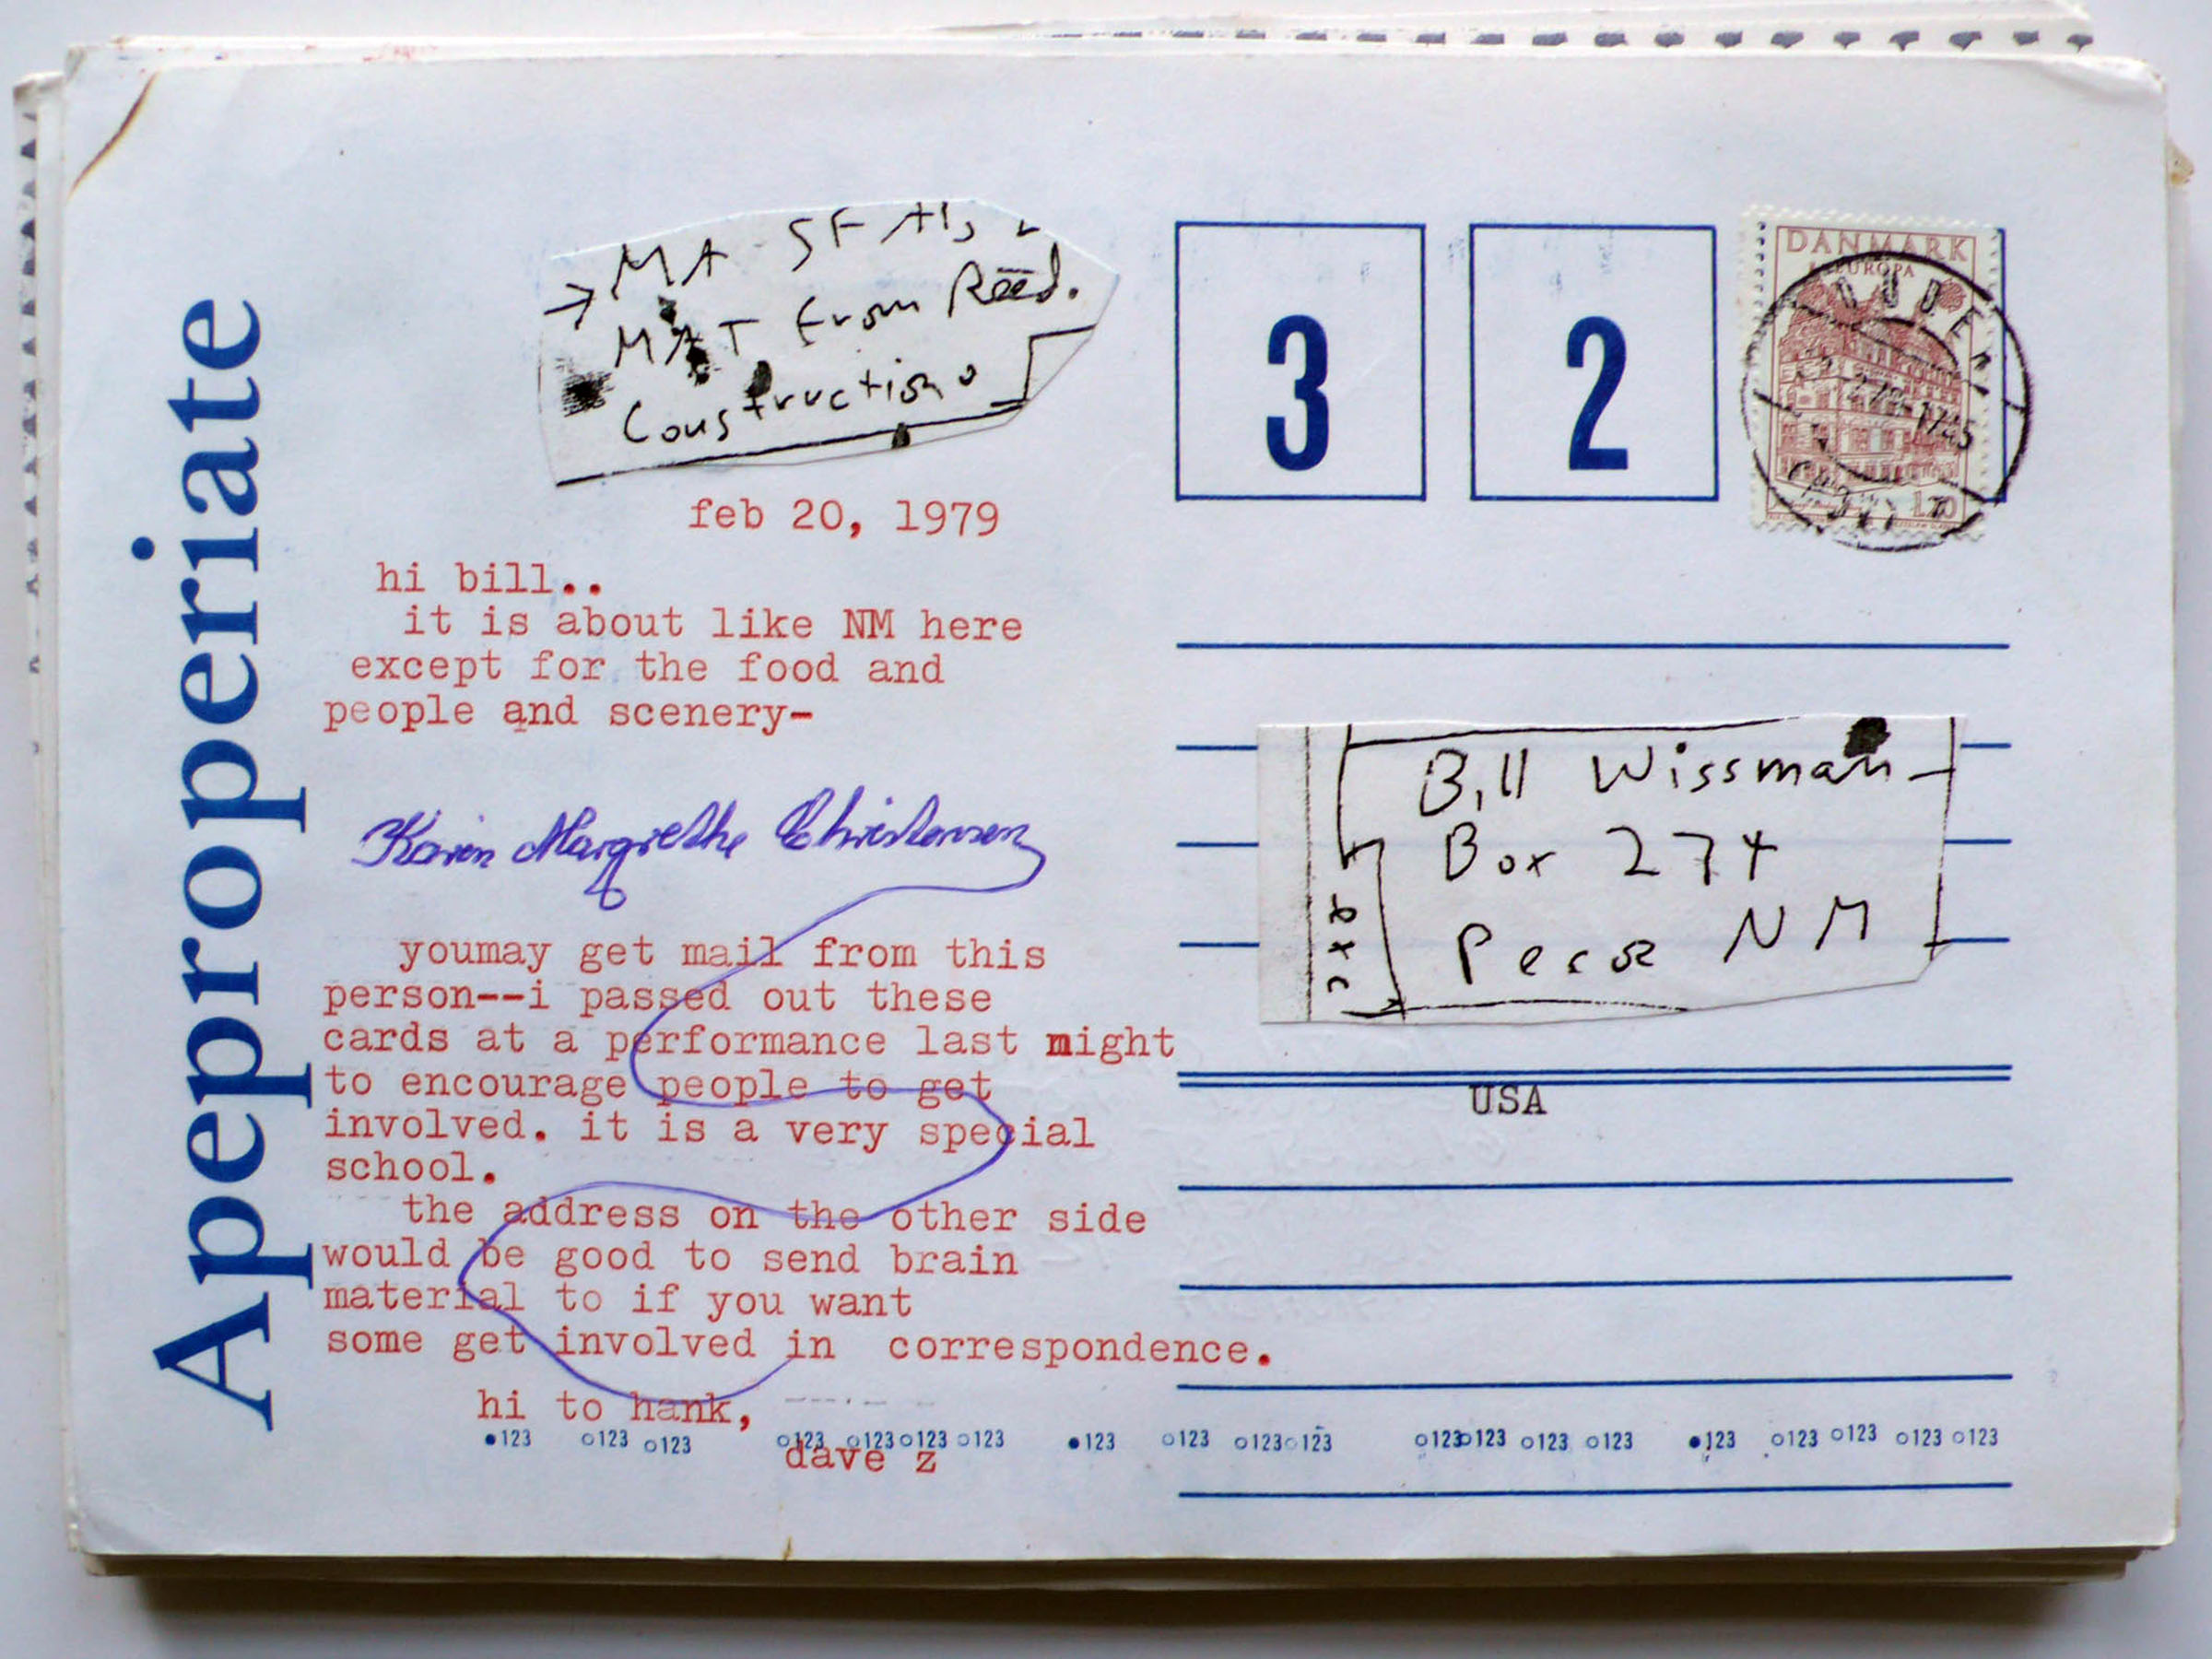 Apeproperiate
MA SF
→ MAT from Reed.
Construction
feb 20, 1979
hi bill..
it is about like NM here
except for the food and
people and scenery-
Karen Margrethe Christensen
youmay get mail from this
person--i passed out these
cards at a performance last night
to encourage people to get
involved. it is a very special
school.
the address on the other side
would be good to send brain
material to if you want
some get involved in correspondence.
hi to hank,
dave z
3 2
DANMARK
EUROPA
120
Bill Wissman
Box 274
NM
USA
●123 ○123 ○123 ○123 ○123 ○123 ○123 ●123 ○123 ○123 ○123 ○123 ○123 ○123 ○123 ●123 ○123 ○123 ○123 ○123